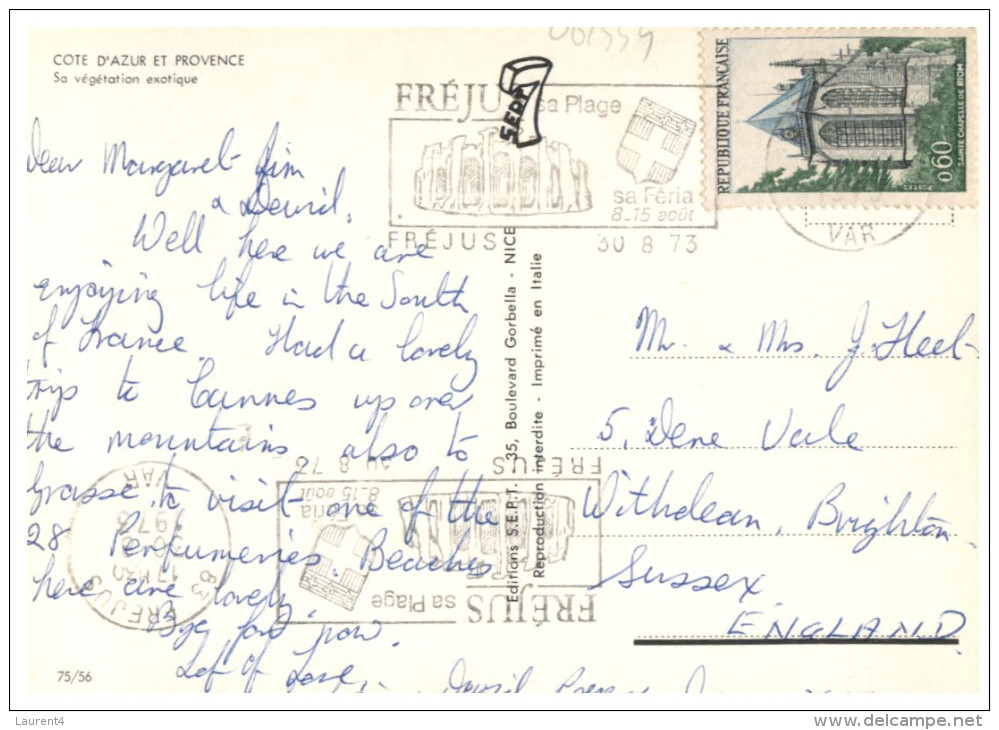 COTE D'AZUR ET PROVENCE
Sa végétation exotique
FRÉJUS sa Plage
sa Féria
8-15 août
FRÉJUS 30 8 73
VAR
SEPT
REPUBLIQUE FRANÇAISE
0,60
POSTES
SAINTE CHAPELLE DE RIOM
Dear Margaret Jim
& Deuril.
Well here we are
enjoying life in the South
of France. Had a lovely
trip to Cannes up over
the mountains also to
Grasse, to visit one of the
28 Perfumeries. Beaches
here are lovely.
Bye for now.
Lot of Love,
Deuril
Mr. & Mrs. J. Heel
5, Dene Vale
Withdean, Brighton
Sussex
ENGLAND
Editions S.E.P.T. 35, Boulevard Gorbella - NICE
Reproduction interdite - Imprimé en Italie
FRÉJUS sa Plage
sa Féria
8-15 août
FRÉJUS 8 73
83 FRÉJUS
17H30
1973
VAR
75/56
Laurent4
delcampe.net